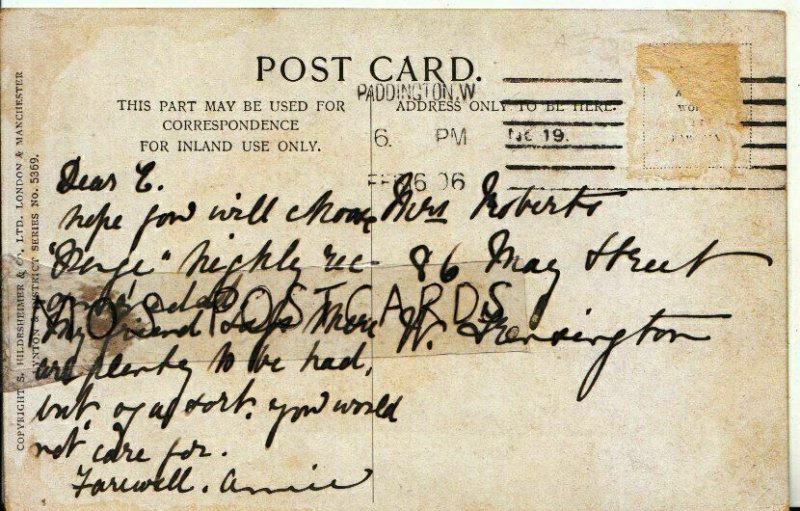 POST CARD.
THIS PART MAY BE USED FOR
CORRESPONDENCE
FOR INLAND USE ONLY.
ADDRESS ONLY TO BE HERE.
PADDINGTON.W
6. PM
No 19.
FEB 6 06
COPYRIGHT S. HILDESHEIMER & Co. LTD. LONDON & MANCHESTER
LYNTON & DISTRICT SERIES No. 5369.
Dear E.
hope you will
"Penge" highly rec-
My friend says there
are plenty to be had,
but of a sort you would
not care for.
Farewell. Annie
Mrs Roberts
86 May Street
W. Kensington
POSTCARDS